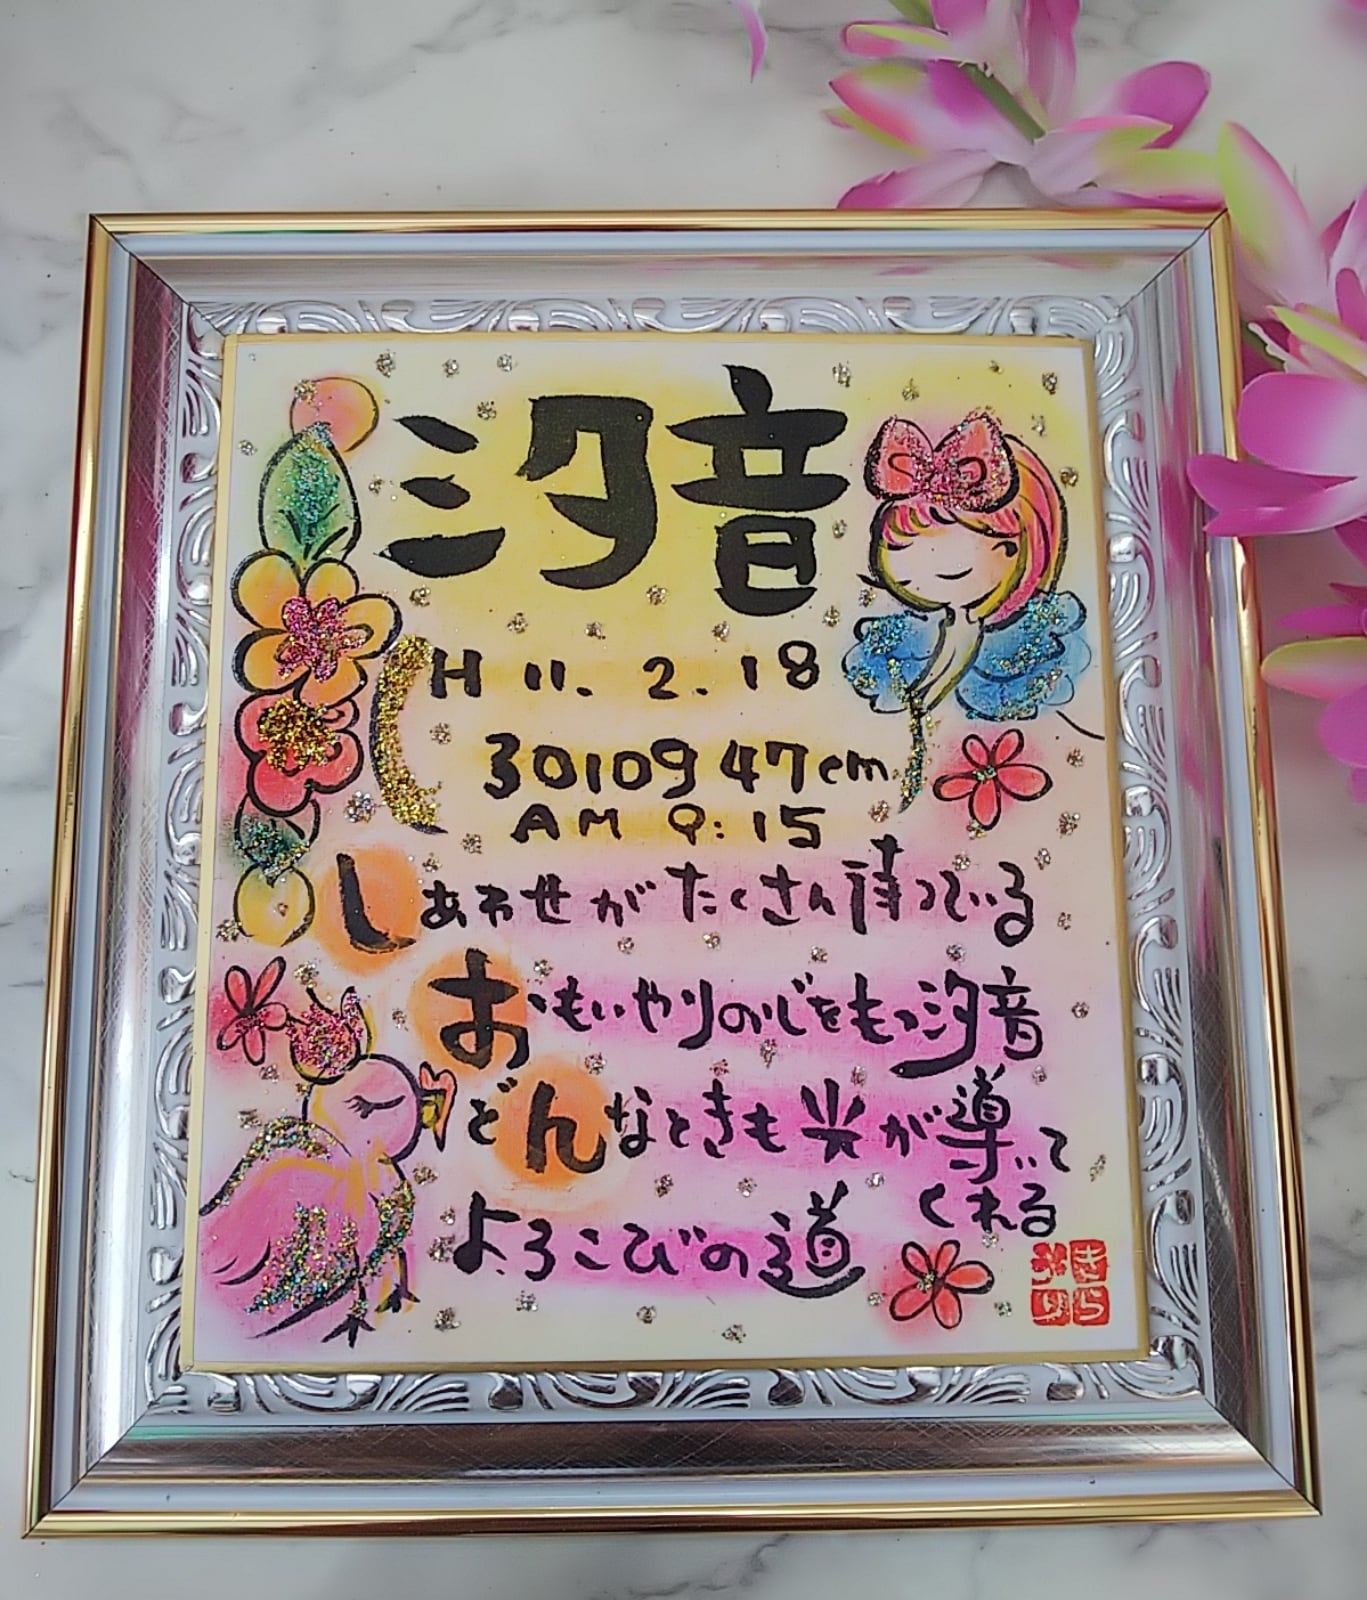 汐音
H 11. 2. 18
3010g 47cm
AM 9:15
しあわせがたくさん待っている
おもいやりの心をもつ汐音
どんなときも光が導いて
くれる
よろこびの道
きら